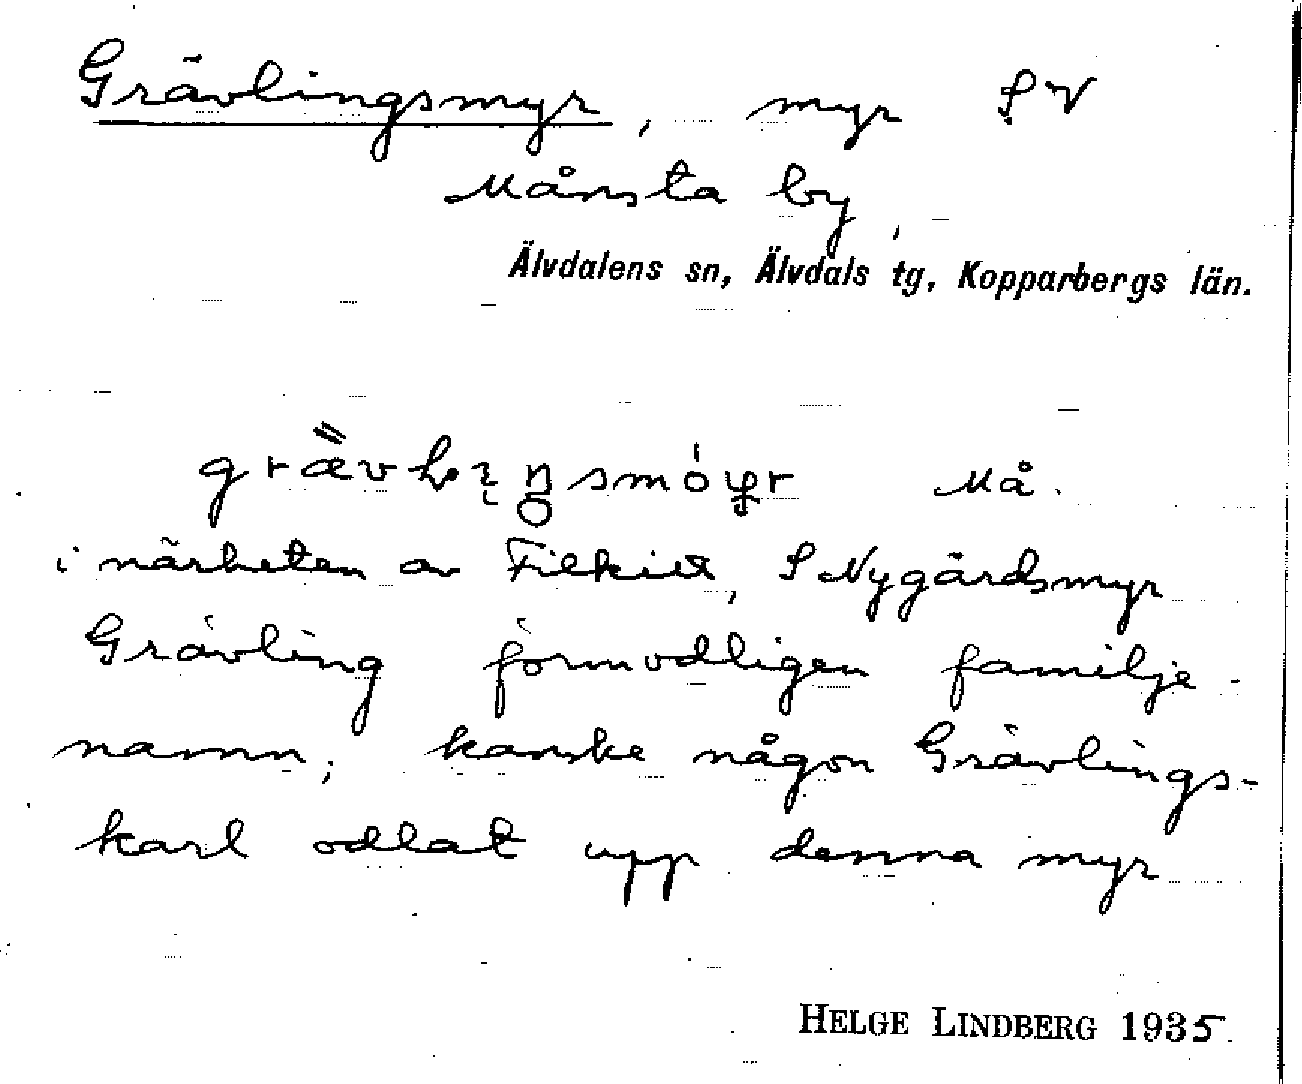 Grävlingsmyr, myr SV
Månsta by,
Älvdalens sn, Älvdals tg, Kopparbergs län.
Må.
i närheten av Filkiet, S Nygårdsmyr
Grävling förmodligen familje-
namn; kanske någon Grävlings-
karl odlat upp denna myr
HELGE LINDBERG 1935.